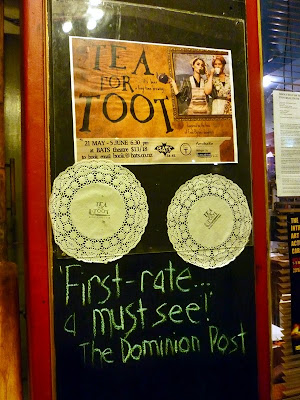 TEA
FOR
TOOT
21 MAY - 5 JUNE 6.30 pm
at BATS theatre $13/18
to book email book@bats.co.nz
BATS
TEA
TOOT
'First-rate...
a must see!'
The Dominion Post